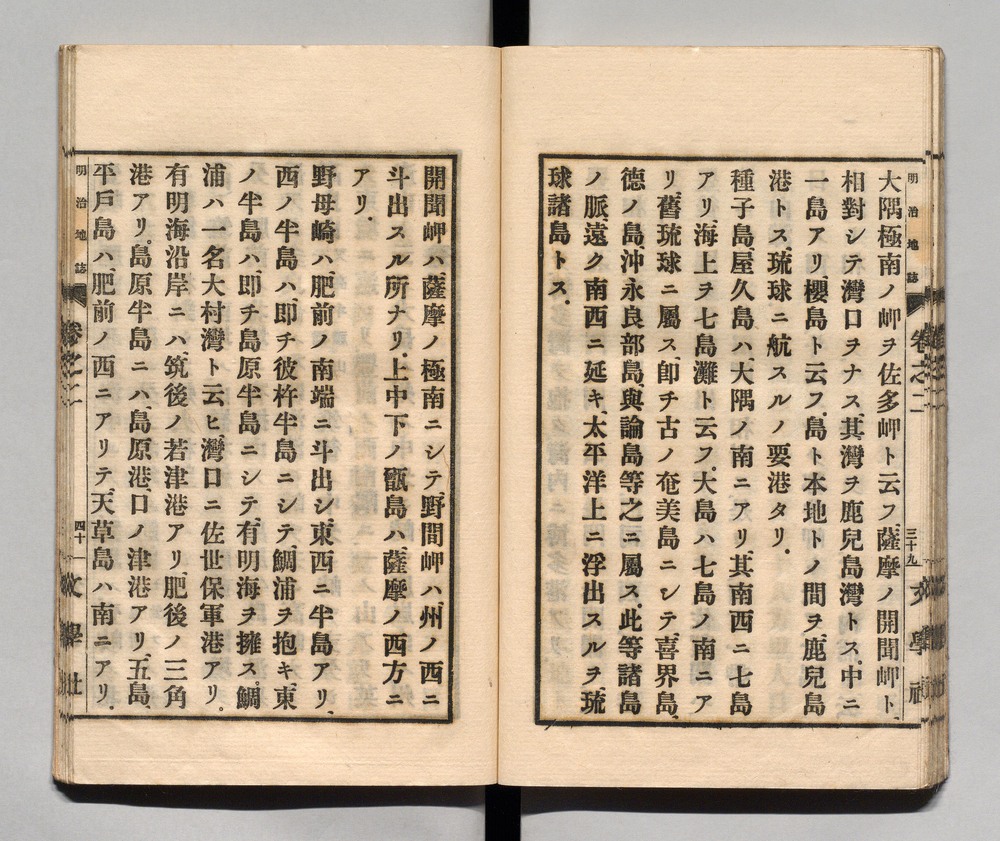 明治地誌 卷之二 三十九 文學社
大隅極南ノ岬ヲ佐多岬ト云フ、薩摩ノ開聞岬ト、
相對シテ灣口ヲナス、其灣ヲ鹿兒島灣トス、中ニ
一島アリ、櫻島ト云フ、島ト本地トノ間ヲ、鹿兒島
港トス、琉球ニ航スルノ要港タリ。
種子島、屋久島ハ、大隅ノ南ニアリ、其南西ニ七島
アリ、海上ヲ七島灘ト云フ、大島ハ七島ノ南ニア
リ、舊琉球ニ屬ス、卽チ古ノ奄美島ニシテ、喜界島、
德ノ島、沖永良部島、與論島等之ニ屬ス、此等諸島
ノ脈、遠ク南西ニ延キ、太平洋上ニ浮出スルヲ、琉
球諸島トス。
開聞岬ハ、薩摩ノ極南ニシテ、野間岬ハ、州ノ西ニ
斗出スル所ナリ、上中下ノ甑島ハ薩摩ノ西方ニ
アリ。
野母崎ハ、肥前ノ南端ニ斗出シ、東西ニ半島アリ、
西ノ半島ハ、卽チ彼杵半島ニシテ、鯛浦ヲ抱キ、東
ノ半島ハ、卽チ島原半島ニシテ、有明海ヲ擁ス、鯛
浦ハ一名大村灣ト云ヒ、灣口ニ佐世保軍港アリ。
有明海沿岸ニハ、筑後ノ若津港アリ、肥後ノ三角
港アリ。島原半島ニハ、島原港口ノ津港アリ、五島、
平戶島ハ、肥前ノ西ニアリテ、天草島ハ南ニアリ、
明治地誌 卷之二 四十 文學社